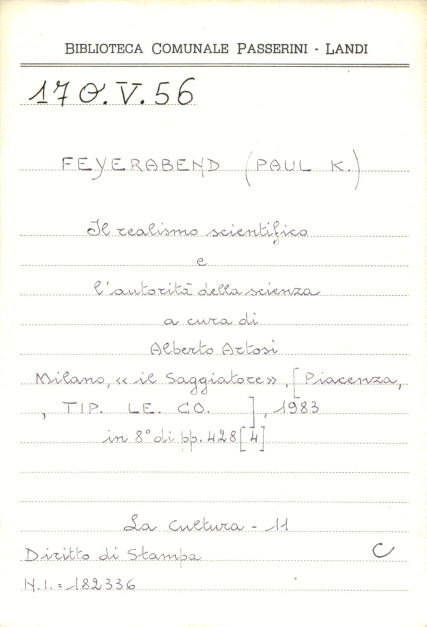 BIBLIOTECA COMUNALE PASSERINI - LANDI
170.V.56
FEYERABEND (PAUL K.)
Il realismo scientifico
e
l'autorità della scienza
a cura di
Alberto Artosi
Milano, «il Saggiatore», [Piacenza,
, TIP. LE. CO. ], 1983
in 8° di pp. 428[4]
La Cultura - 11
Diritto di Stampa
C
N.I. = 182336